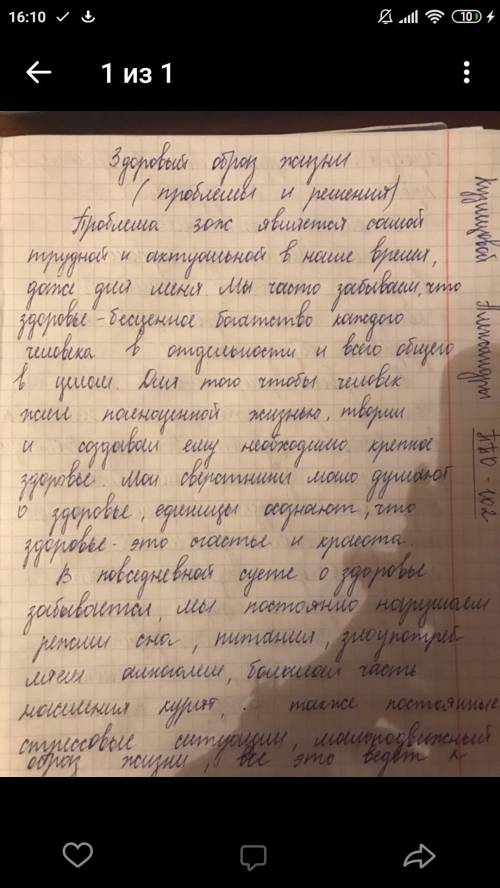 16:10
10
1 из 1
Здоровый образ жизни
(проблемы и решения)
Проблема зож является самой
трудной и актуальной в наше время,
даже для меня. Мы часто забываем, что
здоровье - бесценное богатство каждого
человека в отдельности и всего общего
в целом. Для того чтобы человек
жил полноценной жизнью, творил
и создавал ему необходимо крепкое
здоровье. Мои сверстники мало думают
о здоровье, единицы осознают, что
здоровье - это счастье и красота.
В повседневной суете о здоровье
забывается, мы постоянно нарушаем
режим сна, питания, злоупотреб
ляем алкоголем, большая часть
населения курят, также постоянные
стрессовые ситуации, малоподвижный
образ жизни, все это ведет к